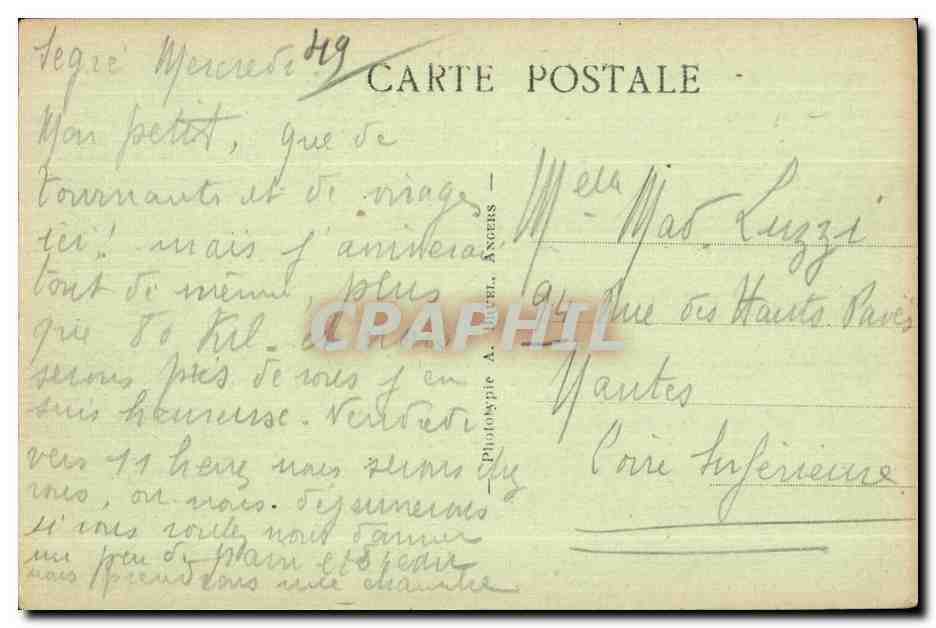 Segré Mercredi 49
CARTE POSTALE
Mon petit, que de
tournants et de virages
ici! mais j'arriverai
tout de même, plus
que 80 Kil. et nous
serons près de vous j'en
suis heureuse. Vendredi
vers 11 heures nous serons chez
vous, où nous déjeunerons
si vous voulez nous donner
un peu de pain et
nous prendrons une chambre
Phototypie A. BRUEL, ANGERS
Melle Mad. Luzzi
94 Rue des Hauts Pavés
Nantes
Loire Inférieure
CPAPHIL